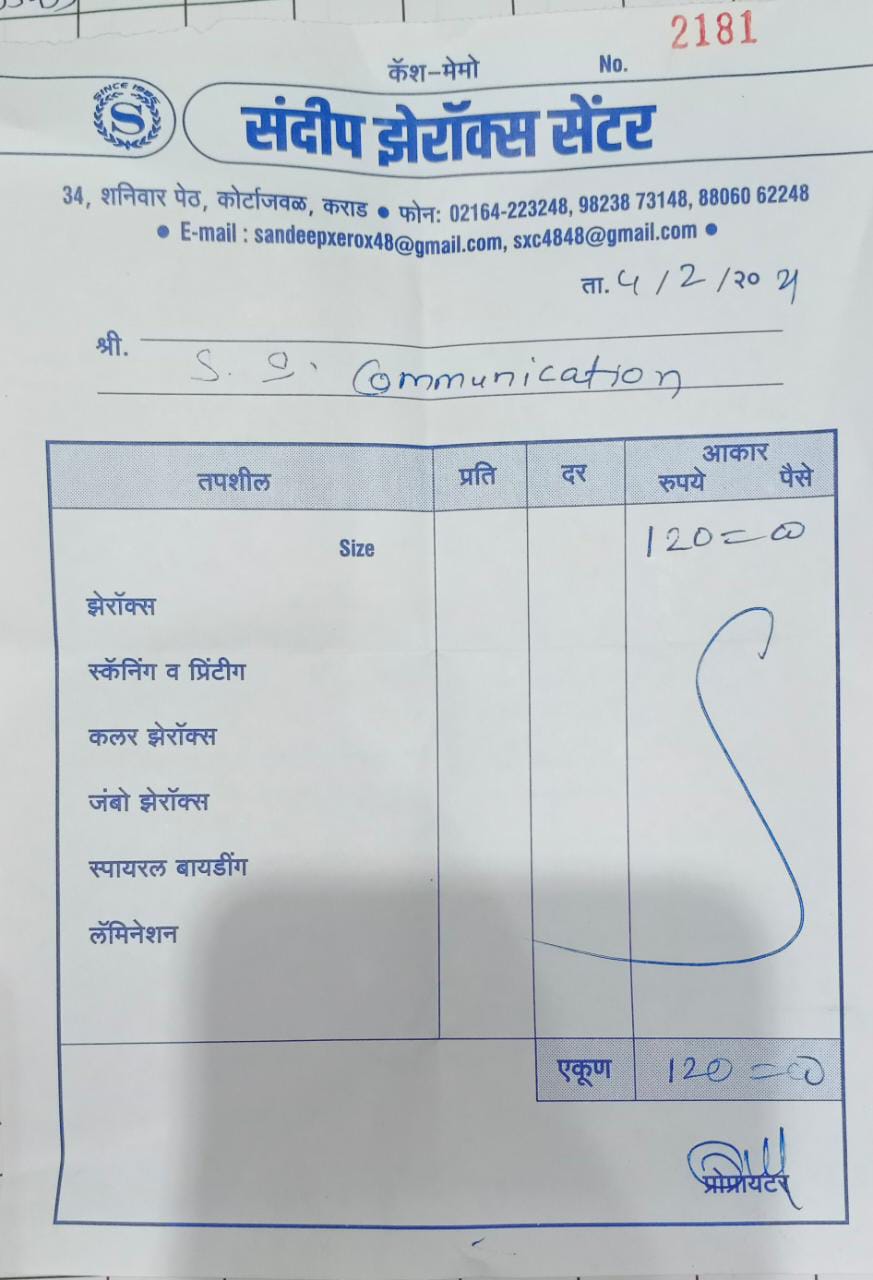 2181
कॅश-मेमो No.
SINCE
S
संदीप झेरॉक्स सेंटर
34, शनिवार पेठ, कोर्टाजवळ, कराड • फोन: 02164-223248, 98238 73148, 88060 62248
• E-mail : sandeepxerox48@gmail.com, sxc4848@gmail.com •
ता. ५ / 2 / २०
श्री.
S. Communication
तपशील प्रति दर आकार
रुपये पैसे
Size 120=00
झेरॉक्स
स्कॅनिंग व प्रिंटीग
कलर झेरॉक्स
जंबो झेरॉक्स
स्पायरल बायडींग
लॅमिनेशन
एकूण 120=00
प्रोप्रायटर